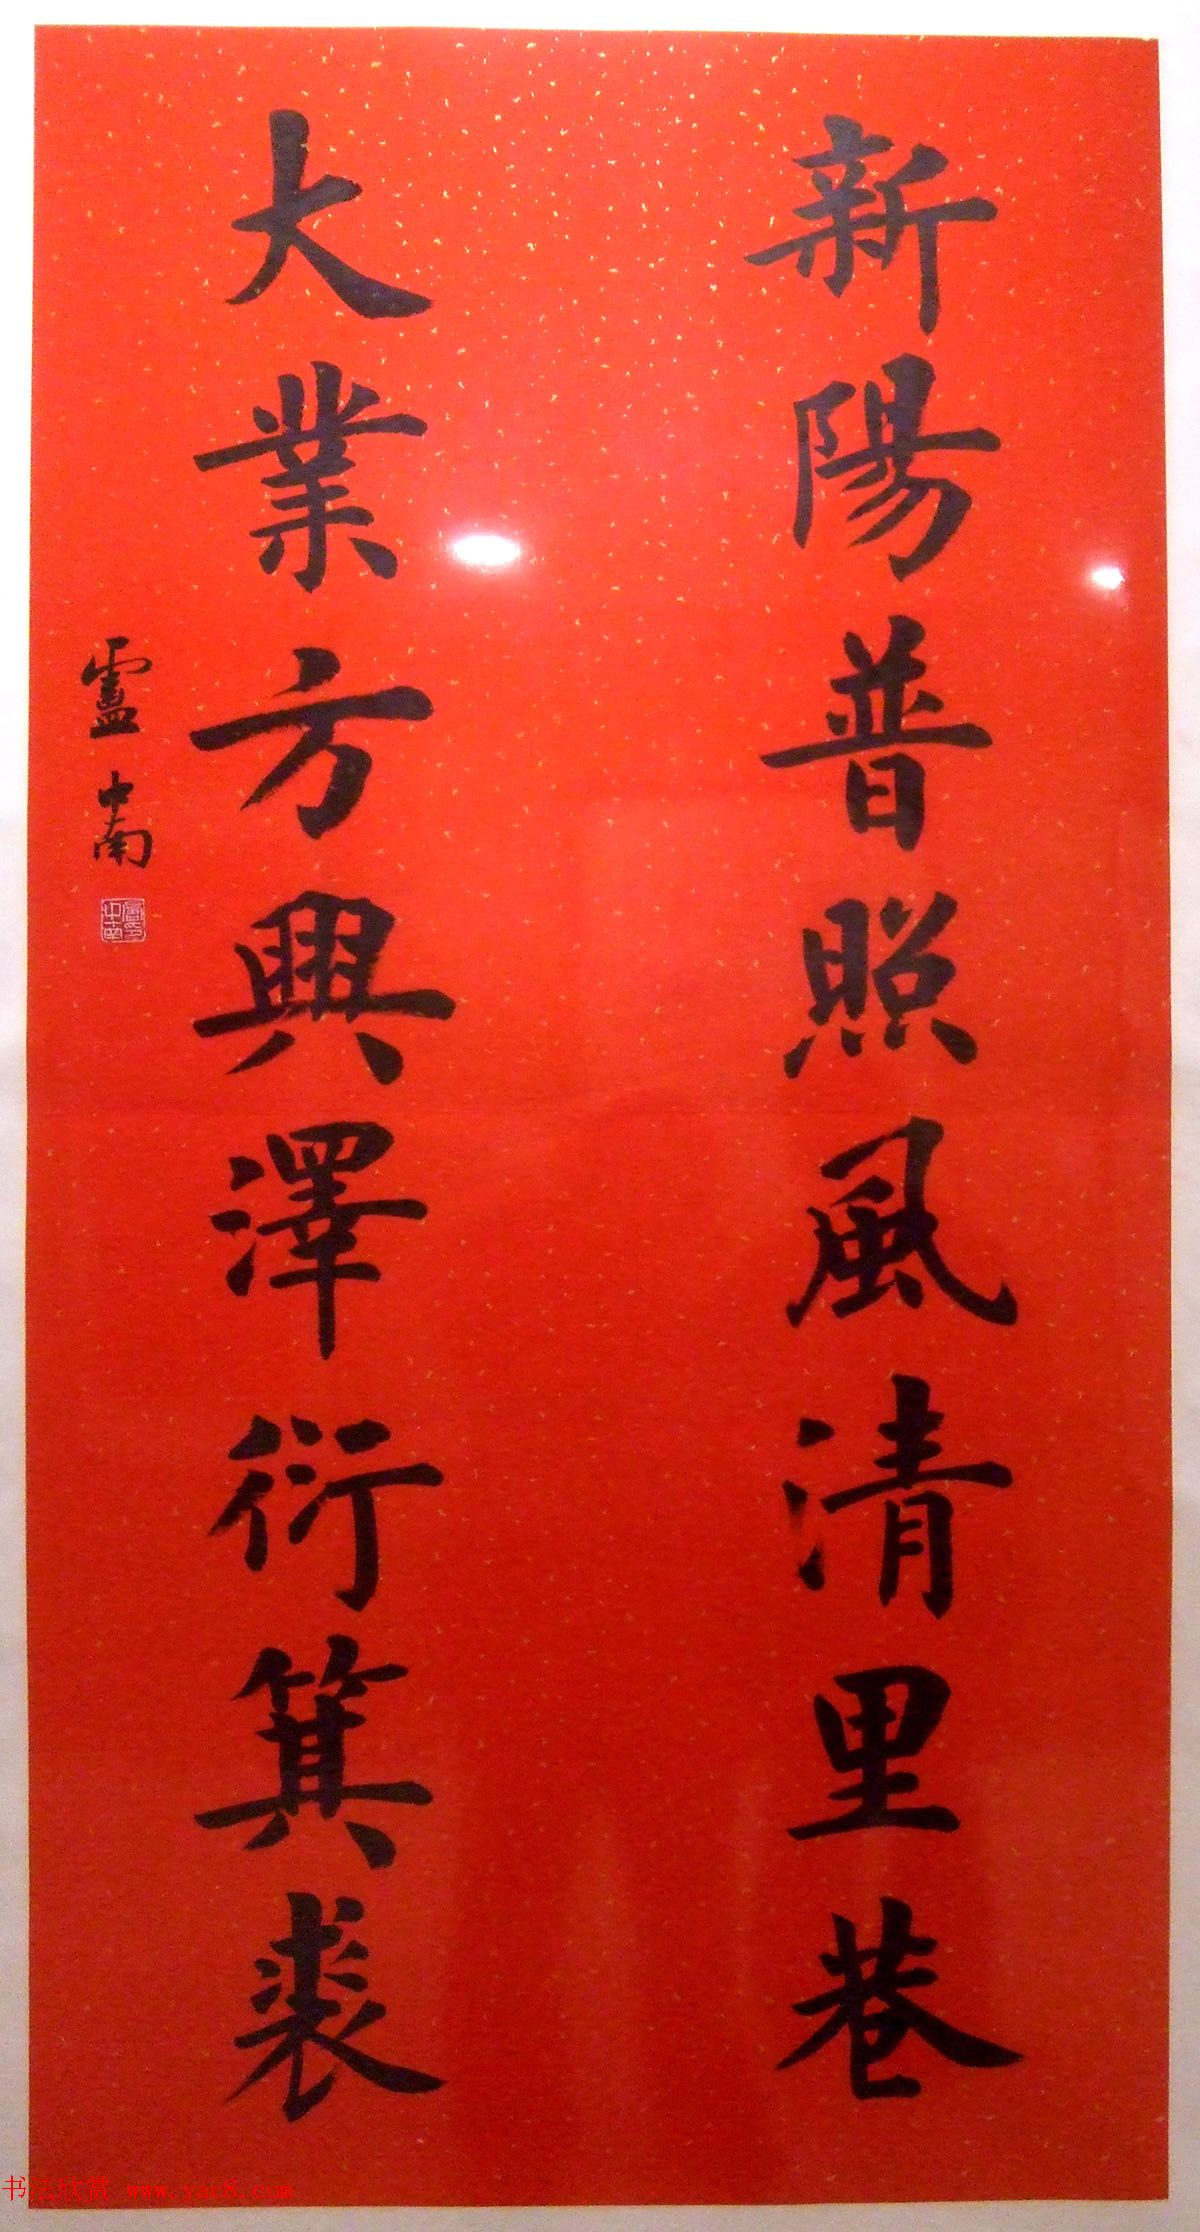 新陽普照風清里巷
大業方興澤衍箕裘
盧中南
盧中南印
书法欣赏 www.yac8.com